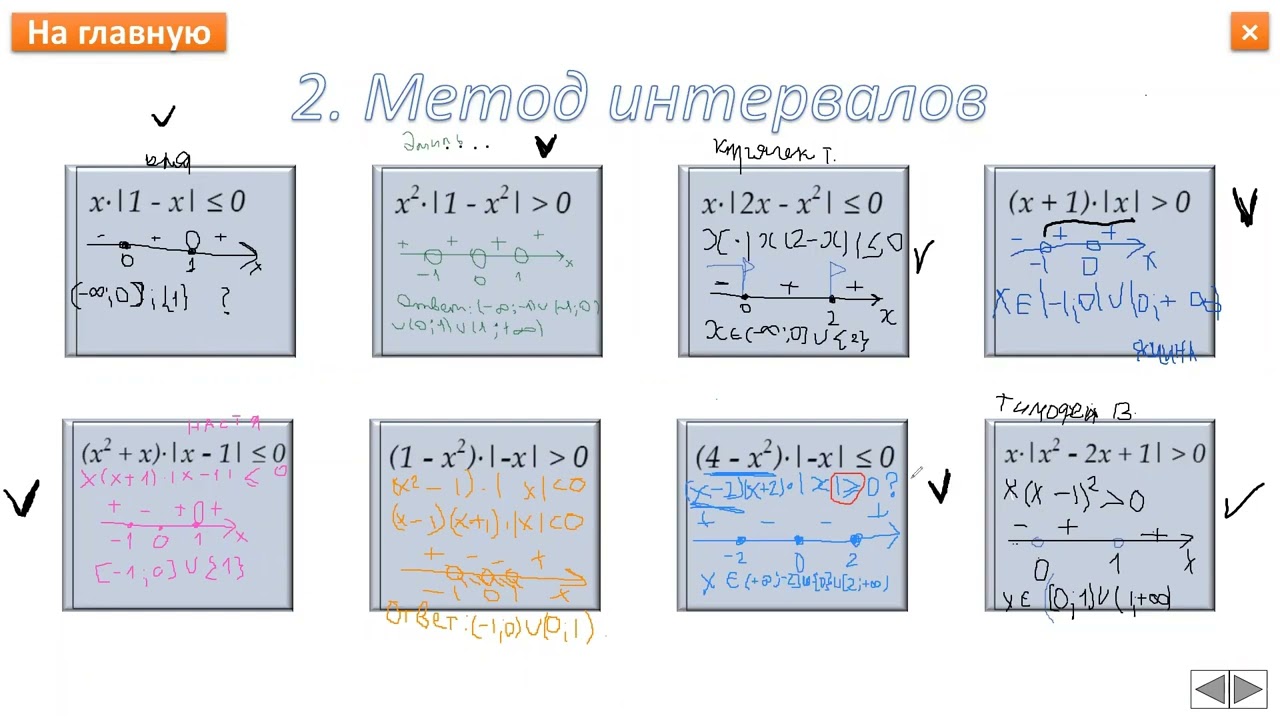 На главную
×
2. Метод интервалов
x·|1 - x| ≤ 0
- + 0 +
0 1 x
(-∞;0];{1} ?
x²·|1 - x²| > 0
+ + + +
-1 0 1 x
Ответ: (-∞;-1)∪(-1;0)
∪(0;1)∪(1;+∞)
x·|2x - x²| ≤ 0
x·|x(2-x)|≤0
- + +
0 2 x
x∈(-∞;0]∪{2}
(x + 1)·|x| > 0
- + +
-1 0 x
x∈(-1;0)∪(0;+∞)
Настя
(x² + x)·|x - 1| ≤ 0
x(x+1)·|x-1| ≤ 0
+ - + 0 +
-1 0 1 x
[-1;0]∪{1}
(1 - x²)·|-x| > 0
(x²-1)·|x|<0
(x-1)(x+1)·|x|<0
+ - - +
-1 0 1 x
Ответ:(-1;0)∪(0;1)
(4 - x²)·|-x| ≤ 0
(x-2)(x+2)·|x|≥0?
+ - - +
-2 0 2
x∈(+∞;-2]∪{0}∪[2;+∞)
Тимофей В.
x·|x² - 2x + 1| > 0
x(x-1)²>0
- + +
0 1 x
x∈(0;1)∪(1;+∞)